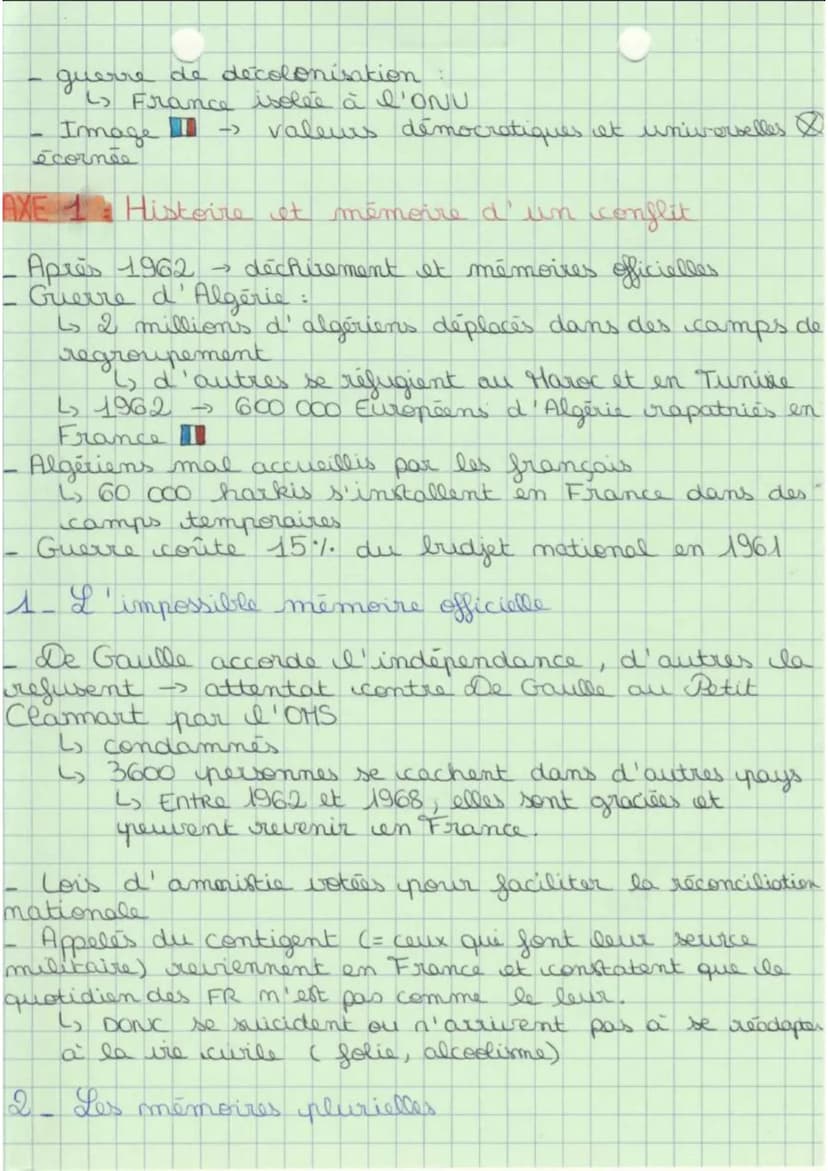 - guerre de décolonisation :
↳ France isolée à l'ONU
- Image 🇫🇷 → valeurs démocratiques et universelles ⊗
écornée
AXE 1 : Histoire et mémoire d'un conflit
- Après 1962 → déchirement et mémoires officielles
- Guerre d'Algérie :
↳ 2 millions d'algériens déplacés dans des camps de
regroupement
↳ d'autres se réfugient au Maroc et en Tunisie
↳ 1962 → 600 000 Européens d'Algérie rapatriés en
France 🇫🇷
- Algériens mal accueillis par les français
↳ 60 000 harkis s'installent en France dans des
camps temporaires
- Guerre coûte 15% du budjet national en 1961
1- L'impossible mémoire officielle
- De Gaulle accorde l'indépendance, d'autres la
refusent → attentat contre De Gaulle au Petit
Clamart par l'OMS
↳ condamnés
↳ 3600 personnes se cachent dans d'autres pays
↳ Entre 1962 et 1968, elles sont graciées et
peuvent revenir en France.
- Lois d'amnistie votées pour faciliter la réconciliation
nationale
- Appelés du contigent (= ceux qui font leur service
militaire) reviennent en France et constatent que le
quotidien des FR n'est pas comme le leur.
↳ DONC se suicident ou n'arrivent pas à se réadapter
à la vie civile (folie, alcoolisme)
2- Les mémoires plurielles